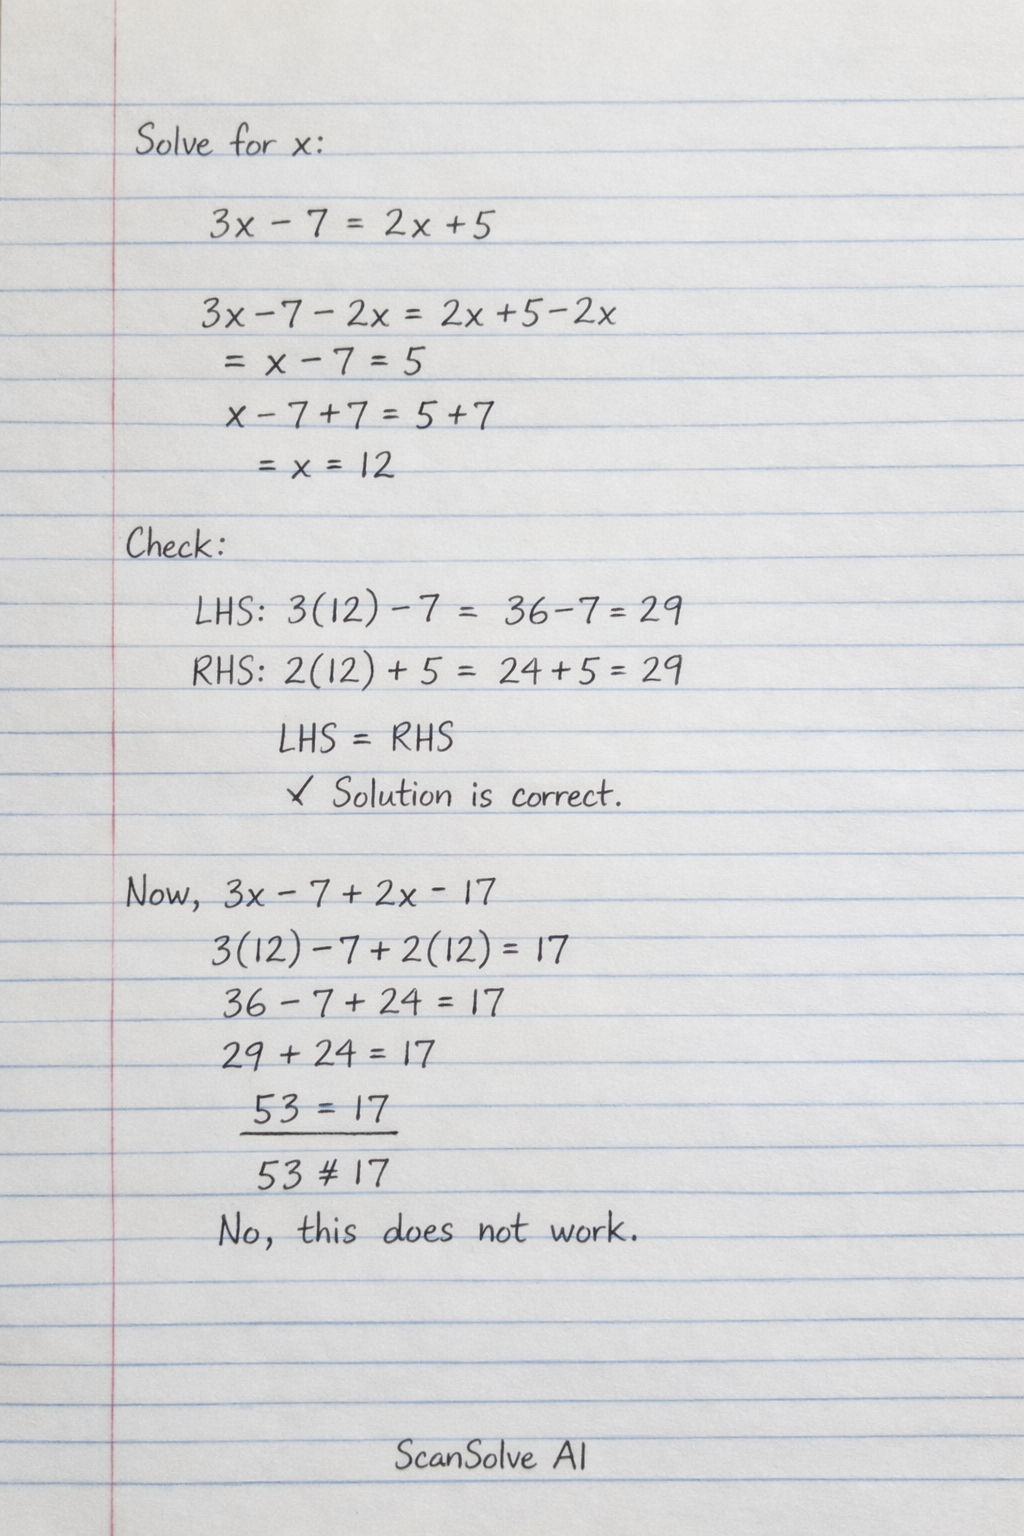 Solve for x:
3x - 7 = 2x + 5
3x - 7 - 2x = 2x + 5 - 2x
= x - 7 = 5
x - 7 + 7 = 5 + 7
= x = 12
Check:
LHS: 3(12) - 7 = 36 - 7 = 29
RHS: 2(12) + 5 = 24 + 5 = 29
LHS = RHS
✓ Solution is correct.
Now, 3x - 7 + 2x - 17
3(12) - 7 + 2(12) = 17
36 - 7 + 24 = 17
29 + 24 = 17
53 = 17
53 ≠ 17
No, this does not work.
ScanSolve AI